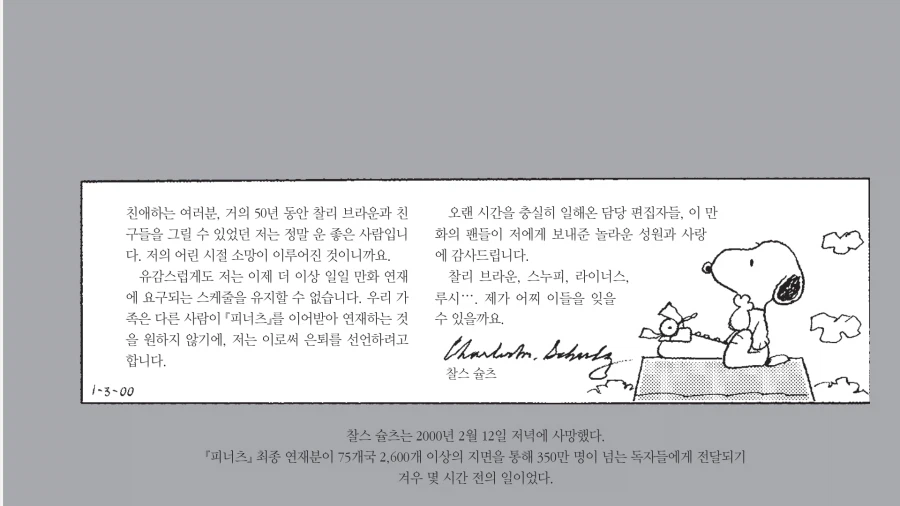 친애하는 여러분, 거의 50년 동안 찰리 브라운과 친
구들을 그릴 수 있었던 저는 정말 운 좋은 사람입니
다. 저의 어린 시절 소망이 이루어진 것이니까요.
유감스럽게도 저는 이제 더 이상 일일 만화 연재
에 요구되는 스케줄을 유지할 수 없습니다. 우리 가
족은 다른 사람이 『피너츠』를 이어받아 연재하는 것
을 원하지 않기에, 저는 이로써 은퇴를 선언하려고
합니다.
1-3-00
오랜 시간을 충실히 일해온 담당 편집자들, 이 만
화의 팬들이 저에게 보내준 놀라운 성원과 사랑
에 감사드립니다.
찰리 브라운, 스누피, 라이너스,
루시…. 제가 어찌 이들을 잊을
수 있을까요.
Charles M. Schulz
찰스 슐츠
찰스 슐츠는 2000년 2월 12일 저녁에 사망했다.
『피너츠』 최종 연재분이 75개국 2,600개 이상의 지면을 통해 350만 명이 넘는 독자들에게 전달되기
겨우 몇 시간 전의 일이었다.